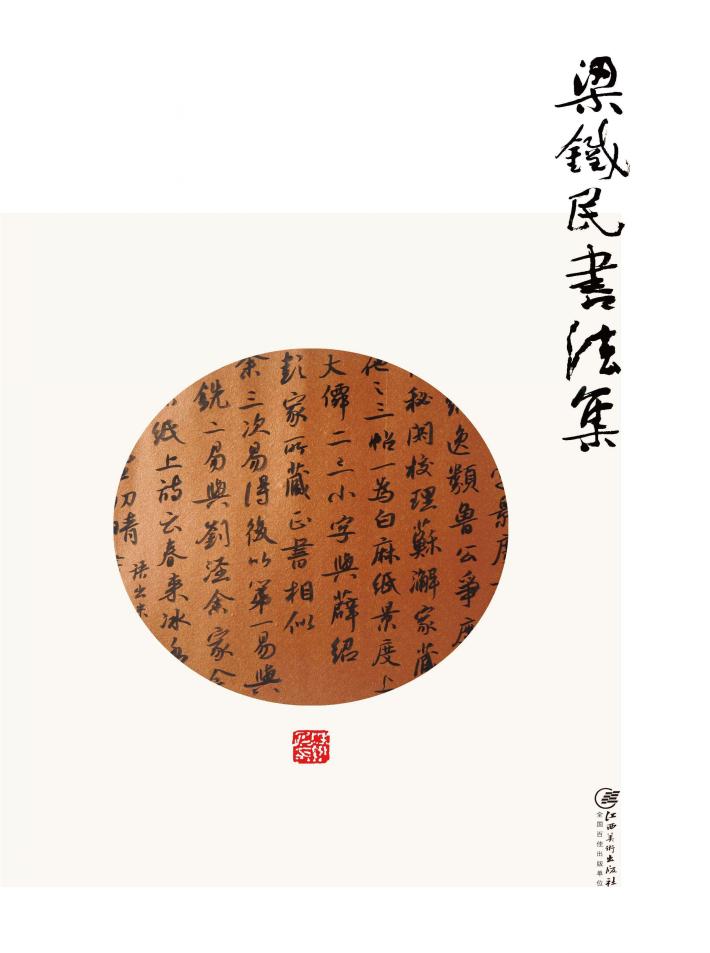 梁鐵民書法集
景度
逸類魯公爭座
秘閣校理蘇澥家藏
他二三帖一為白麻紙景度上
大儒二三小字與薛紹
彭家所藏正書相似
余三次易得後以第一易與
銑二易與劉涇余家今
紙上詩云春來冰
初晴
江西美術出版社
全国百佳出版单位